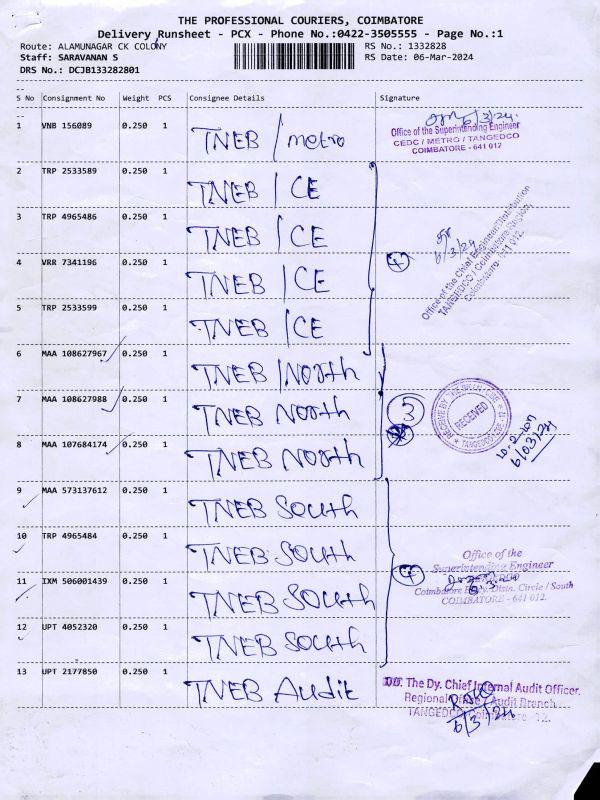 THE PROFESSIONAL COURIERS, COIMBATORE
Delivery Runsheet - PCX - Phone No.:0422-3505555 - Page No.:1
Route: ALAMUNAGAR CK COLONY RS No.: 1332828
Staff: SARAVANAN S RS Date: 06-Mar-2024
DRS No.: DCJB133282801
S No Consignment No Weight PCS Consignee Details Signature
1 VNB 156089 0.250 1 TNEB / metro
6/3/24
Office of the Superintending Engineer
CEDC / METRO / TANGEDCO
COIMBATORE - 641 012
2 TRP 2533589 0.250 1 TNEB / CE
3 TRP 4965486 0.250 1 TNEB / CE
4 VRR 7341196 0.250 1 TNEB / CE
5 TRP 2533599 0.250 1 TNEB / CE
4
6/3/24
Office of the Chief Engineer/Distribution
TANGEDCO / Coimbatore Region,
Coimbatore - 641 012.
6 MAA 108627967 0.250 1 TNEB / North
7 MAA 108627988 0.250 1 TNEB North
8 MAA 107684174 0.250 1 TNEB North
3
RECEIVED
6/03/24
9 MAA 573137612 0.250 1 TNEB South
10 TRP 4965484 0.250 1 TNEB South
11 IXM 506001439 0.250 1 TNEB South
12 UPT 4052320 0.250 1 TNEB South
4
Office of the
Superintending Engineer
Coimbatore Distn. Circle / South
COIMBATORE - 641 012.
13 UPT 2177850 0.250 1 TNEB Audit
O/O. The Dy. Chief Internal Audit Officer.
Regional Office / Audit Branch
TANGEDCO Coimbatore - 12.
6/3/24